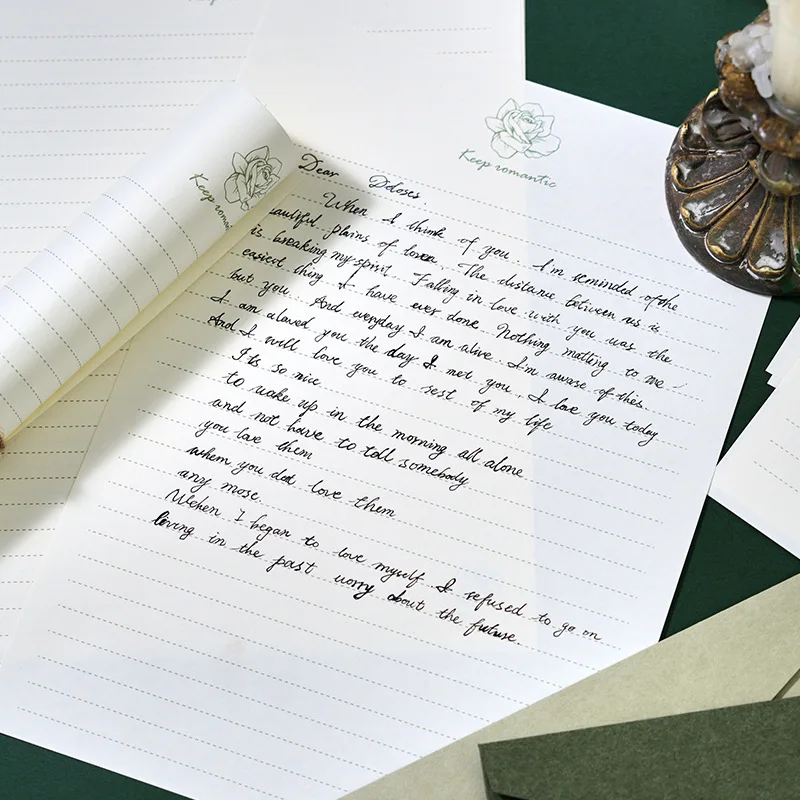 Keep romantic
Keep romantic
Dear Doloses
When I think of you. I'm reminded of the
beautiful plains of love. The distance between us is
is breaking my spirit. Falling in love with you was the
easiest thing I have ever done. Nothing matting to me
but you. And everyday I am alive. I'm aware of this.
I am alaved you the day I met you. I love you today
And I will love you to rest of my life
It's so nice
to wake up in the morning all alone
and not have to tell somebody
you love them
when you dod love them
any more.
Wehen I began to love myself I refused to go on
living in the past worry about the future.